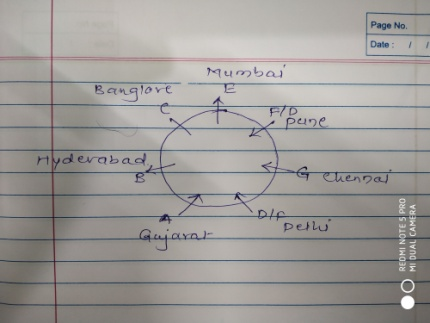 Page No.
Date : / /
Mumbai
Banglare E
C F/D
Pune
Hyderabad
B G Chennai
A D/F
Gujarat Delhi
REDMI NOTE 5 PRO
MI DUAL CAMERA